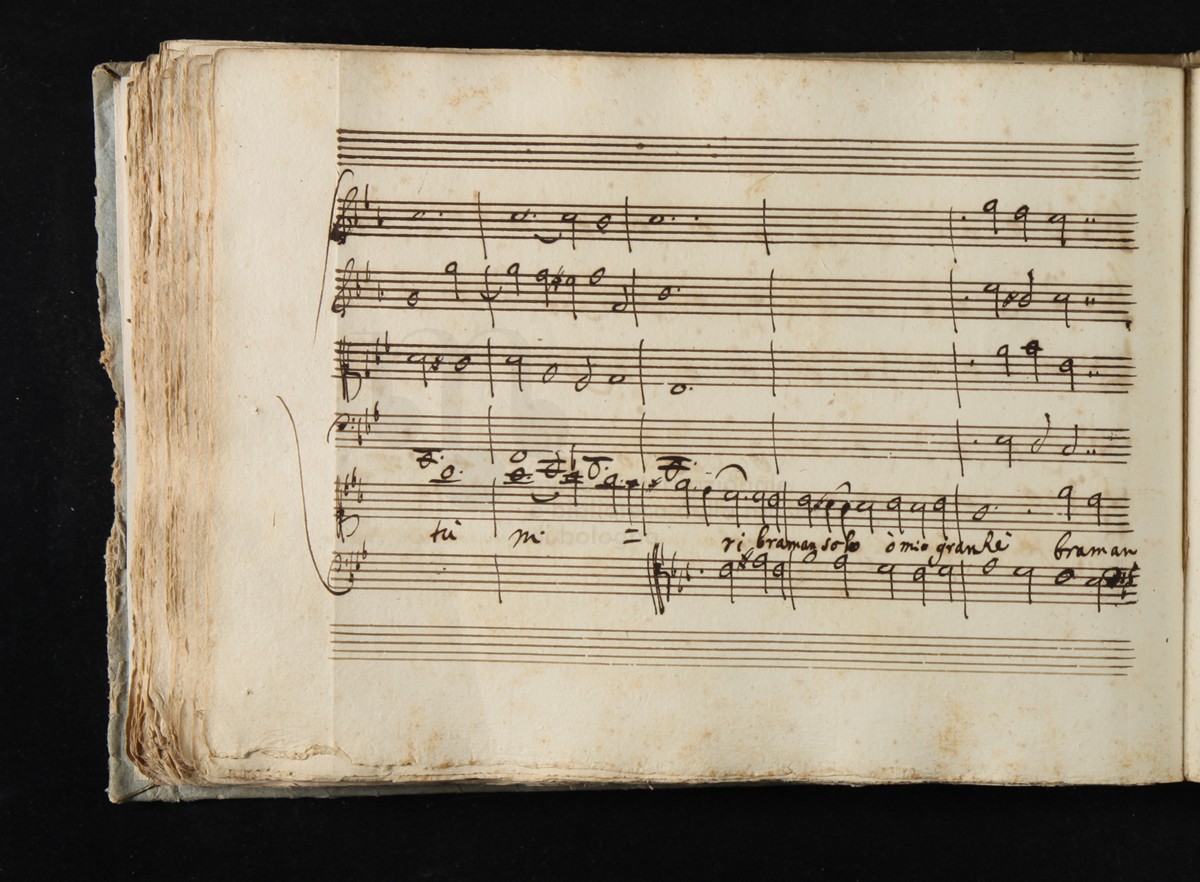 tù mi ri braman solo ò mio gran Rè braman